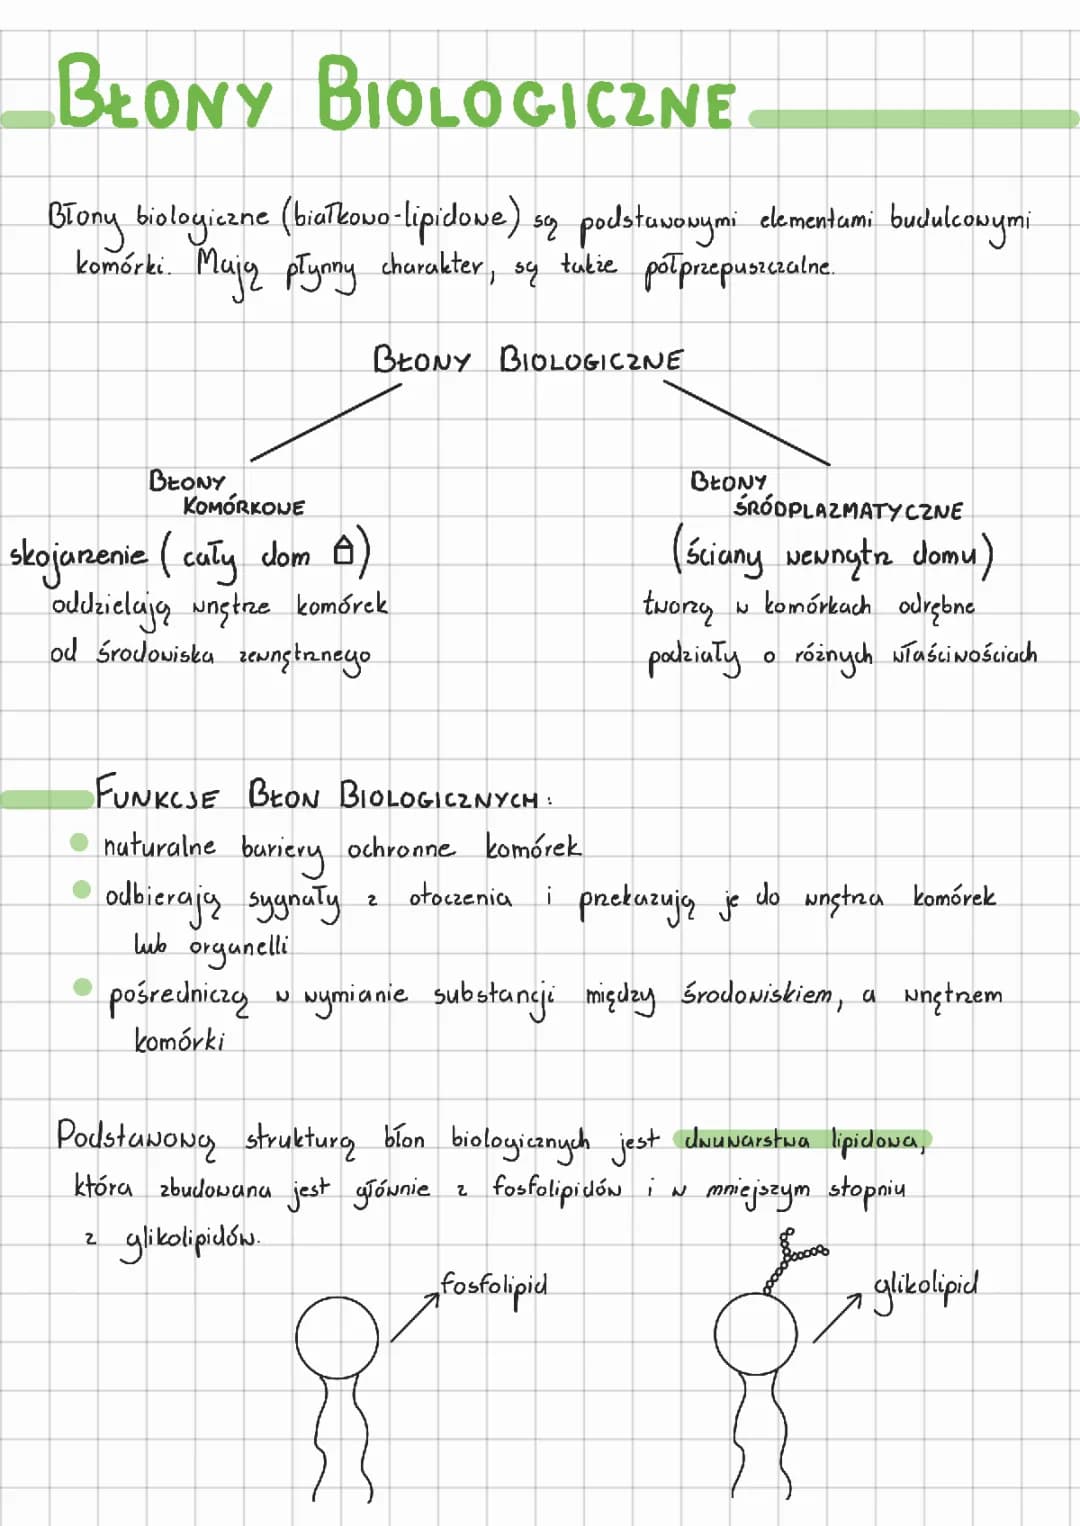 BŁONY BIOLOGICZNE
Błony biologiczne (białkowo-lipidowe) są podstawowymi elementami budulcowymi
komórki. Mają płynny charakter, są także półprzepuszczalne.
BŁONY BIOLOGICZNE
BŁONY
KOMÓRKOWE
skojarzenie (cały dom)
oddzielają wnętrze komórek
od środowiska zewnętrznego
BŁONY
ŚRÓDPLAZMATYCZNE
(ściany wewnątrz domu)
tworzą w komórkach odrębne
podziały o różnych właściwościach
FUNKCJE BŁON BIOLOGICZNYCH:
naturalne bariery ochronne komórek
odbierają sygnały z otoczenia i przekazują je do wnętrza komórek
lub organelli
pośredniczą w wymianie substancji między środowiskiem, a wnętrzem
komórki
Podstawową strukturą błon biologicznych jest dwuwarstwa lipidowa,
która zbudowana jest głównie z fosfolipidów i w mniejszym stopniu
z glikolipidów.
fosfolipid
glikolipid